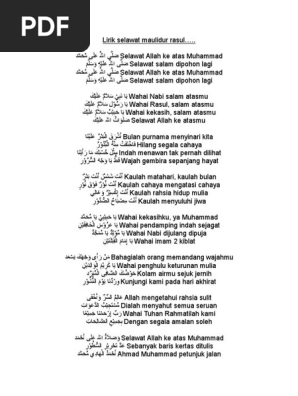 PDF
Lirik selawat maulidur rasul.....
صَلَّى اللهُ عَلَى مُحَمَّد Selawat Allah ke atas Muhammad
صَلَّى اللهُ عَلَيْهِ وَسَلَّم Selawat salam dipohon lagi
صَلَّى اللهُ عَلَى مُحَمَّد Selawat Allah ke atas Muhammad
صَلَّى اللهُ عَلَيْهِ وَسَلَّم Selawat salam dipohon lagi
يَا نَبِيْ سَلاَمٌ عَلَيْكَ Wahai Nabi salam atasmu
يَا رَسُوْل سَلاَمٌ عَلَيْكَ Wahai Rasul, salam atasmu
يَا حَبِيْبْ سَلاَمٌ عَلَيْكَ Wahai kekasih, salam atasmu
صَلَوَاتُ اللهِ عَلَيْكَ Selawat Allah ke atasmu
أَشْرَقَ الْبَدْرُ عَلَيْنَا Bulan purnama menyinari kita
فَاخْتَفَتْ مِنْهُ الْبُدُوْرُ Hilang segala cahaya
مِثْلَ حُسْنِكَ مَا رَأَيْنَا Indah menawan tak pernah dilihat
قَطُّ يَا وَجْهَ السُّرُوْرِ Wajah gembira sepanjang hayat
أَنْتَ شَمْسٌ أَنْتَ بَدْرٌ Kaulah matahari, kaulah bulan
أَنْتَ نُوْرٌ فَوْقَ نُوْرٍ Kaulah cahaya mengatasi cahaya
أَنْتَ إِكْسِيْرٌ وَغَالِي Kaulah rahsia hidup mulia
أَنْتَ مِصْبَاحُ الصُّدُوْرِ Kaulah menyuluhi jiwa
يَا حَبِيْبِيْ يَا مُحَمَّد Wahai kekasihku, ya Muhammad
يَا عَرُوْسَ الْخَافِقَيْنِ Wahai pendamping indah sejagat
يَا مُؤَيَّدْ يَا مُمَجَّدْ Wahai Nabi dijulang dipuja
يَا إِمَامَ الْقِبْلَتَيْنِ Wahai imam 2 kiblat
مَنْ رَأَى وَجْهَكَ يَسْعَدْ Bahagialah orang memandang wajahmu
يَا كَرِيْمَ الْوَالِدَيْنِ Wahai penghulu keturunan mulia
حَوْضُكَ الصَّافِى الْمُبَرَّدْ Kolam airmu sejuk jernih
وِرْدُنَا يَوْمَ النُّشُوْرِ Kunjungi kami pada hari akhirat
عَالِمُ السِّرِّ وَأَخْفَى Allah mengetahui rahsia sulit
مُسْتَجِيْبُ الدَّعَوَاتِ Dialah menyahut semua seruan
رَبِّ إِرْحَمْنَا جَمِيْعًا Wahai Tuhan Rahmatilah kami
بِجَمِيْعِ الصَّالِحَاتِ Dengan segala amalan soleh
وَصَلاَةُ اللهِ عَلَى أَحْمَد Selawat Allah ke atas Muhammad
عَدَّ تَحْرِيْرِ السُّطُوْرِ Sebanyak baris kertas ditulis
أَحْمَدُ الْهَادِيْ مُحَمَّد Ahmad Muhammad petunjuk jalan